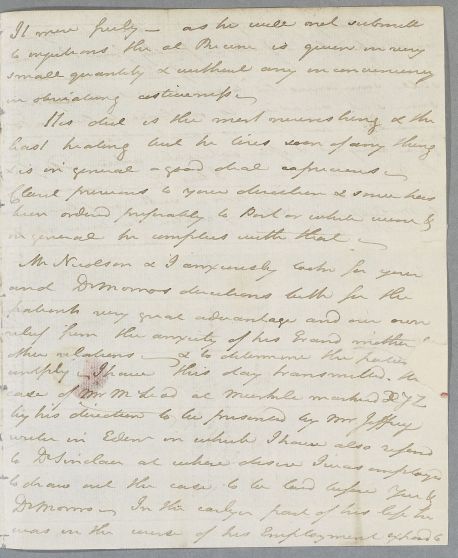 It more freely — as he will not submit
to injections the ol Ricini is given in very
small quantity & without any inconveniency
in obviating costiveness —
His diet is the most nourishing & the
least heating but he tires soon of any thing
& is in general a good deal capricious —
Claret previous to your direction & since has
been ordered preferably to Port or white wine &
in general he complies with that —
Mr Nicolson & I anxiously look for your
and Dr Monros directions both for the
patients very great advantage and our own
relief from the anxiety of his Grand mother
other relations — & to determine the
I have this day transmitted the
case of Mr McLeod at marked XYZ
by his direction to be presented by Mr Jeffrey
writer in Edenr in which I have also referred
to Dr Sinclair at whose desire I was employed
to draw out the case to be laid before You &
Dr Monro — In the earlyer part of his life he
was in the course of his Employment exposed to